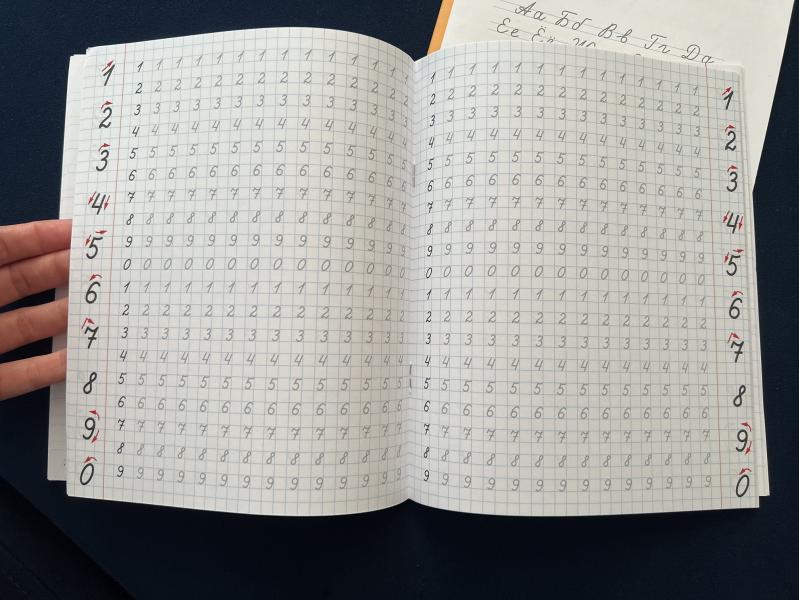 Аа Бб Вв Гг Дд
Ее Ёё
1
2
3
4
5
6
7
8
9
0
1 1 1 1 1 1 1 1 1 1 1 1 1 1 1
2 2 2 2 2 2 2 2 2 2 2 2 2 2 2
3 3 3 3 3 3 3 3 3 3 3 3 3 3 3
4 4 4 4 4 4 4 4 4 4 4 4 4 4 4
5 5 5 5 5 5 5 5 5 5 5 5 5 5 5
6 6 6 6 6 6 6 6 6 6 6 6 6 6 6
7 7 7 7 7 7 7 7 7 7 7 7 7 7 7
8 8 8 8 8 8 8 8 8 8 8 8 8 8 8
9 9 9 9 9 9 9 9 9 9 9 9 9 9 9
0 0 0 0 0 0 0 0 0 0 0 0 0 0 0
1 1 1 1 1 1 1 1 1 1 1 1 1 1 1
2 2 2 2 2 2 2 2 2 2 2 2 2 2 2
3 3 3 3 3 3 3 3 3 3 3 3 3 3 3
4 4 4 4 4 4 4 4 4 4 4 4 4 4 4
5 5 5 5 5 5 5 5 5 5 5 5 5 5 5
6 6 6 6 6 6 6 6 6 6 6 6 6 6 6
7 7 7 7 7 7 7 7 7 7 7 7 7 7 7
8 8 8 8 8 8 8 8 8 8 8 8 8 8 8
9 9 9 9 9 9 9 9 9 9 9 9 9 9 9
1 1 1 1 1 1 1 1 1 1 1 1 1 1
2 2 2 2 2 2 2 2 2 2 2 2 2 2
3 3 3 3 3 3 3 3 3 3 3 3 3 3
4 4 4 4 4 4 4 4 4 4 4 4 4 4
5 5 5 5 5 5 5 5 5 5 5 5 5 5
6 6 6 6 6 6 6 6 6 6 6 6 6 6
7 7 7 7 7 7 7 7 7 7 7 7 7 7
8 8 8 8 8 8 8 8 8 8 8 8 8 8
9 9 9 9 9 9 9 9 9 9 9 9 9 9
0 0 0 0 0 0 0 0 0 0 0 0 0 0
1 1 1 1 1 1 1 1 1 1 1 1 1 1
2 2 2 2 2 2 2 2 2 2 2 2 2 2
3 3 3 3 3 3 3 3 3 3 3 3 3 3
4 4 4 4 4 4 4 4 4 4 4 4 4 4
5 5 5 5 5 5 5 5 5 5 5 5 5 5
6 6 6 6 6 6 6 6 6 6 6 6 6 6
7 7 7 7 7 7 7 7 7 7 7 7 7 7
8 8 8 8 8 8 8 8 8 8 8 8 8 8
9 9 9 9 9 9 9 9 9 9 9 9 9 9
1
2
3
4
5
6
7
8
9
0